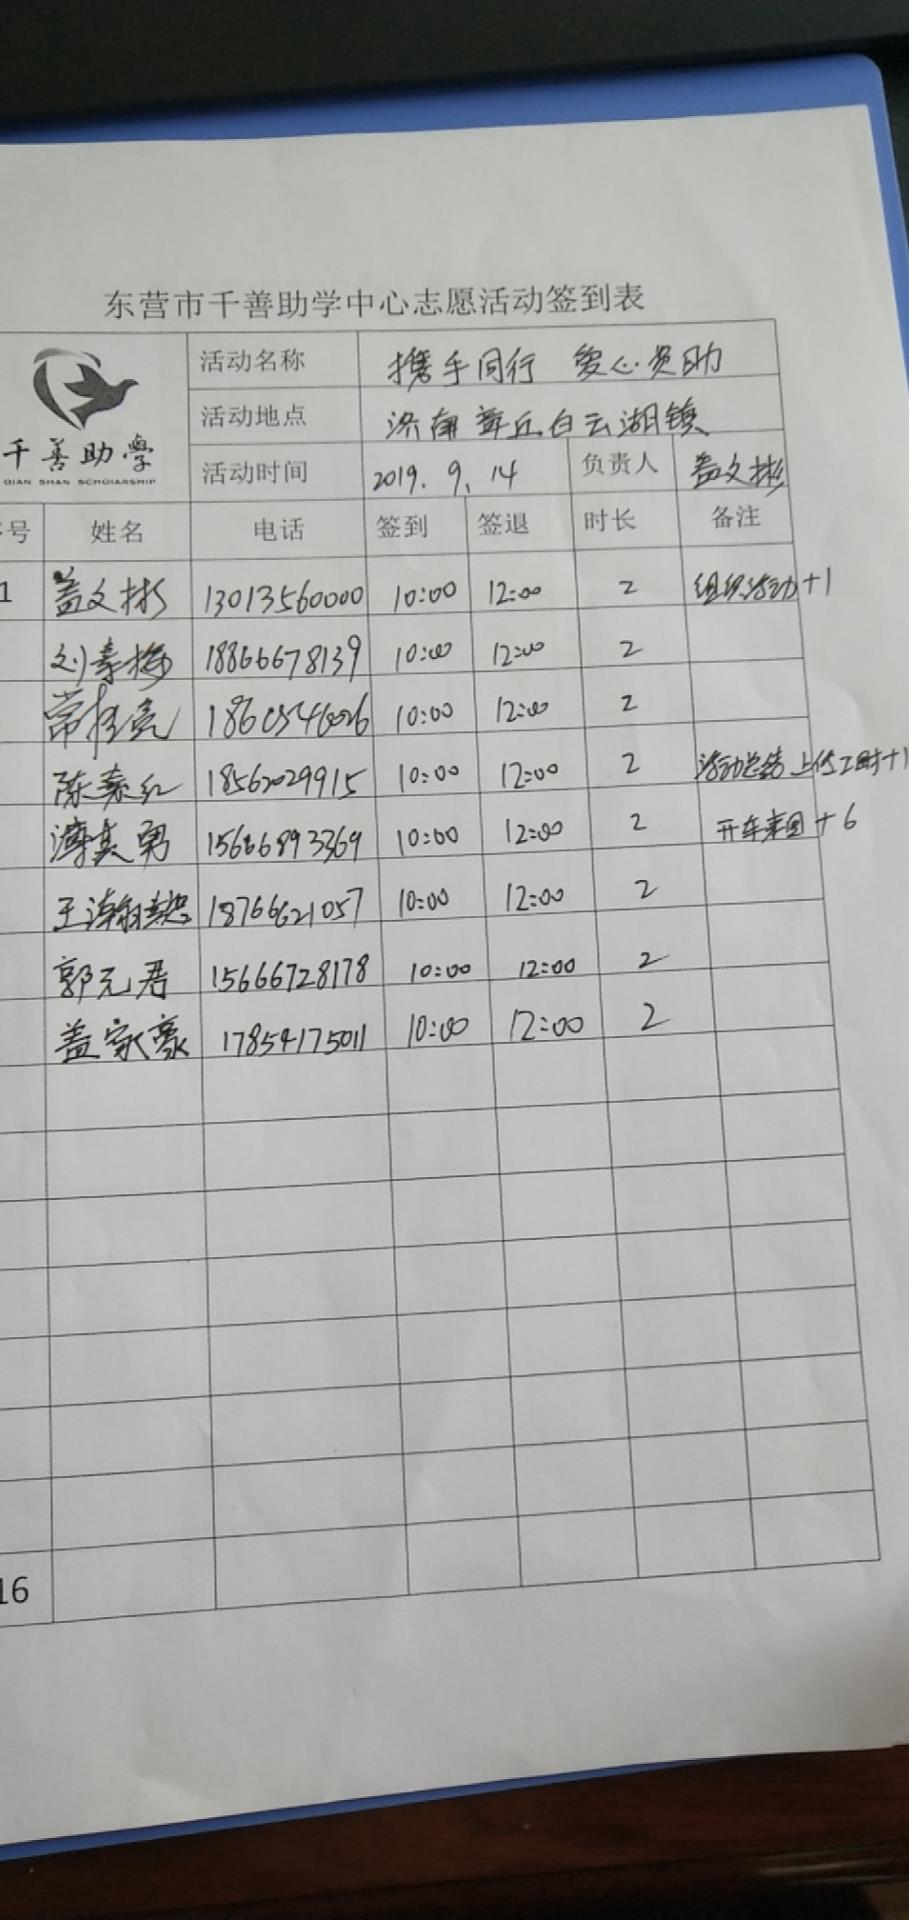 东营市千善助学中心志愿活动签到表
千善助學
QIAN SHAN SCHOLARSHIP
活动名称 携手同行 爱心资助
活动地点 济南章丘白云湖镇
活动时间 2019.9.14 负责人 盖文彬
号 姓名 电话 签到 签退 时长 备注
1 盖文彬 13013560000 10:00 12:00 2 组织活动+1
刘素梅 18866678139 10:00 12:00 2
10:00 12:00 2
陈素红 18562029915 10:00 12:00 2 活动总结上传工时+1
薄其勇 15666893369 10:00 12:00 2 开车来回+6
王瀚 18766621057 10:00 12:00 2
郭元君 15666728178 10:00 12:00 2
盖家豪 17854175011 10:00 12:00 2
16